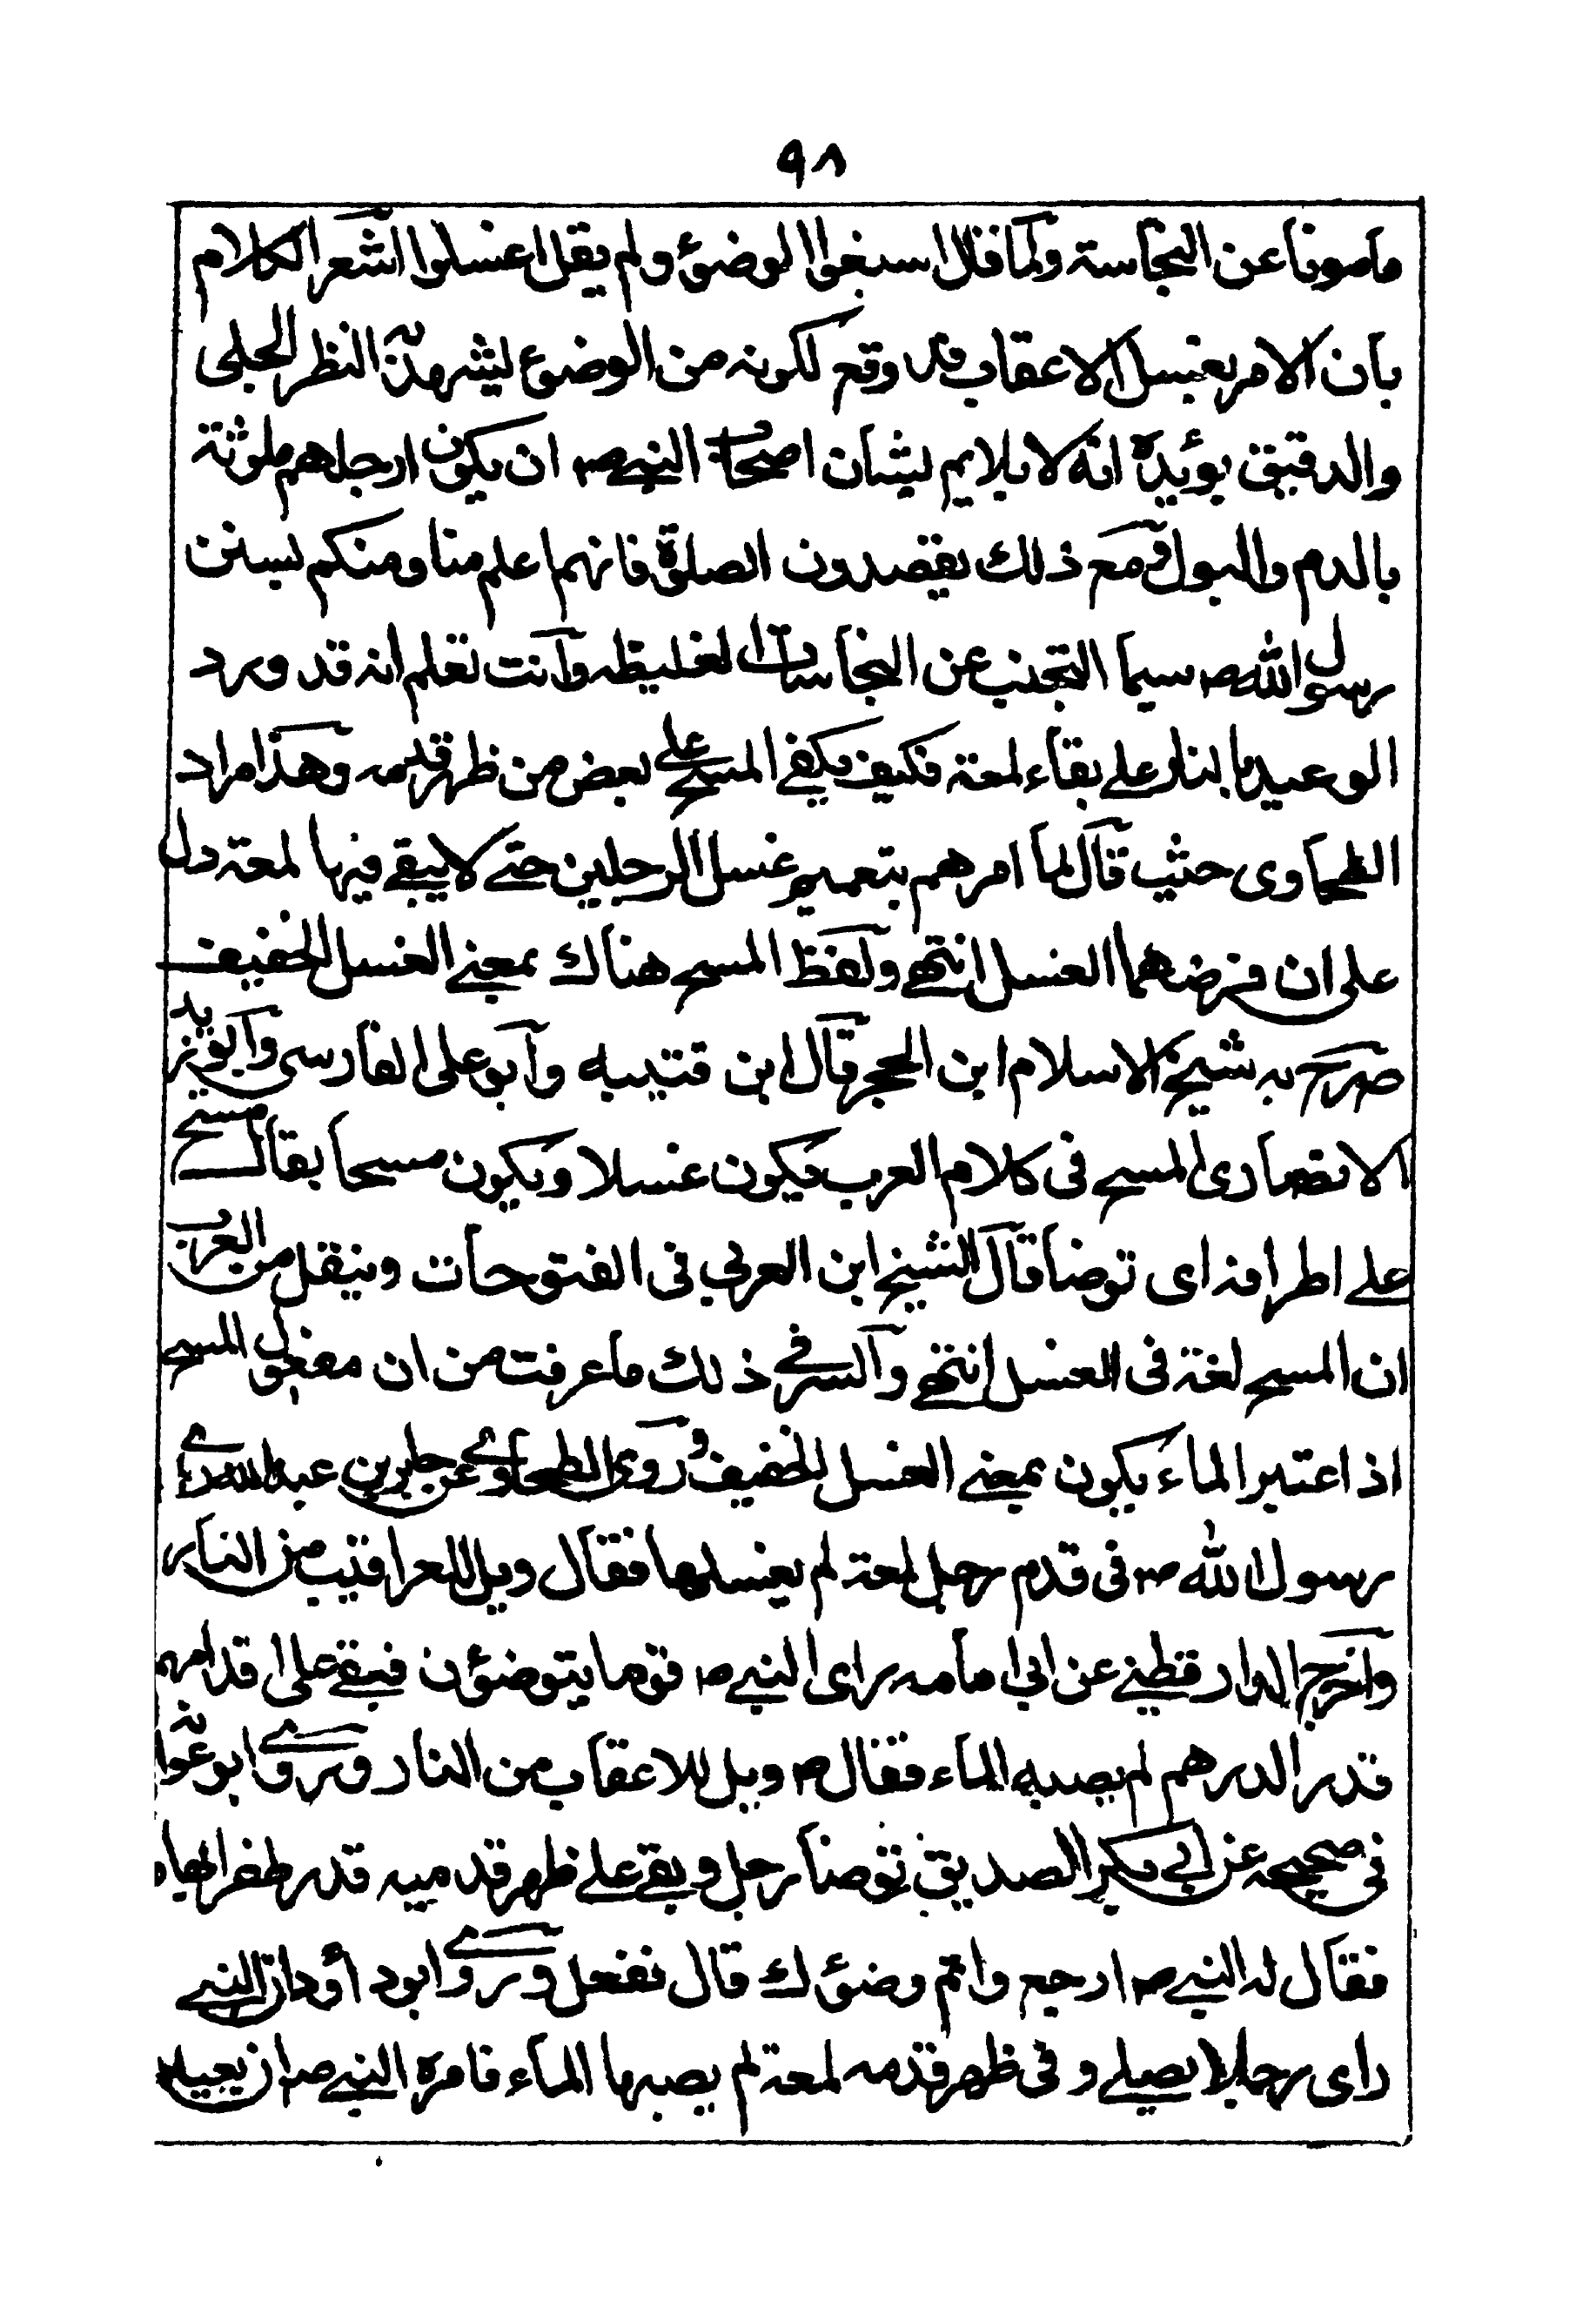 ٩٨
مامونا عن النجاسة ولما قال اسبغوا الوضوء ولم يقل اغسلوا اشعر الكلام
بان الامر بغسل الاعقاب قد وقع لكونه من الوضوء ليشهد به النظر الجلى
والدقيق يؤيده انه لا يلايم لشان اصحاب النبي ص ان يكون ارجلهم ملوثة
بالدم والبول ومع ذلك يقصدون الصلوة فانهم اعلم منا ومنكم بسنن
رسول الله ص سيما التجنب عن النجاسات الغليظه وانت تعلم انه قد ورد
الوعيد بالنار على بقاء لمعة فكيف يكفى المسح على بعض من ظهر قدمه وهذا مراد
الطحاوى حيث قال لما امرهم بتعميم غسل الرجلين حتى لا يبقى فيها لمعة دل
على ان فرضهما الغسل انتهى ولفظ المسح هناك بمعنى الغسل الخفيف
صرح به شيخ الاسلام ابن الحجر قال ابن قتيبه وابو على الفارسى وابو زيد
الانصارى المسح فى كلام العرب فيكون غسلا ويكون مسحا يقال مسح
على اطرافه اى توضأ قال الشيخ ابن العربي فى الفتوحات وينقل من العرب
ان المسح لغة فى الغسل انتهى والسر فى ذلك ما عرفت من ان مفعول المسح
اذ اعتبر الماء يكون بمعنى الغسل الخفيف وروى الطحاوى عن جابر بن عبد الله راى
رسول الله ص فى قدم رجل لمعة لم يغسلها فقال ويل للعراقيب من النار
واخرج الدار قطنى عن ابى امامه راى النبي ص قوما يتوضؤن فبقى على اقدامهم
قدر الدرهم لم يصبه الماء فقال ص ويل للاعقاب من النار وروى ابو عوانه
فى صحيحه عن ابى بكر الصديق توضأ رجل وبقى على ظهر قدميه قدر ظفر ابهامه
فقال له النبي ص ارجع واتم وضوءك قال ففعل وروى ابوداؤد ان النبي
راى رجلا يصلى وفى ظهر قدمه لمعة لم يصبها الماء فامره النبي ص ان يعيد